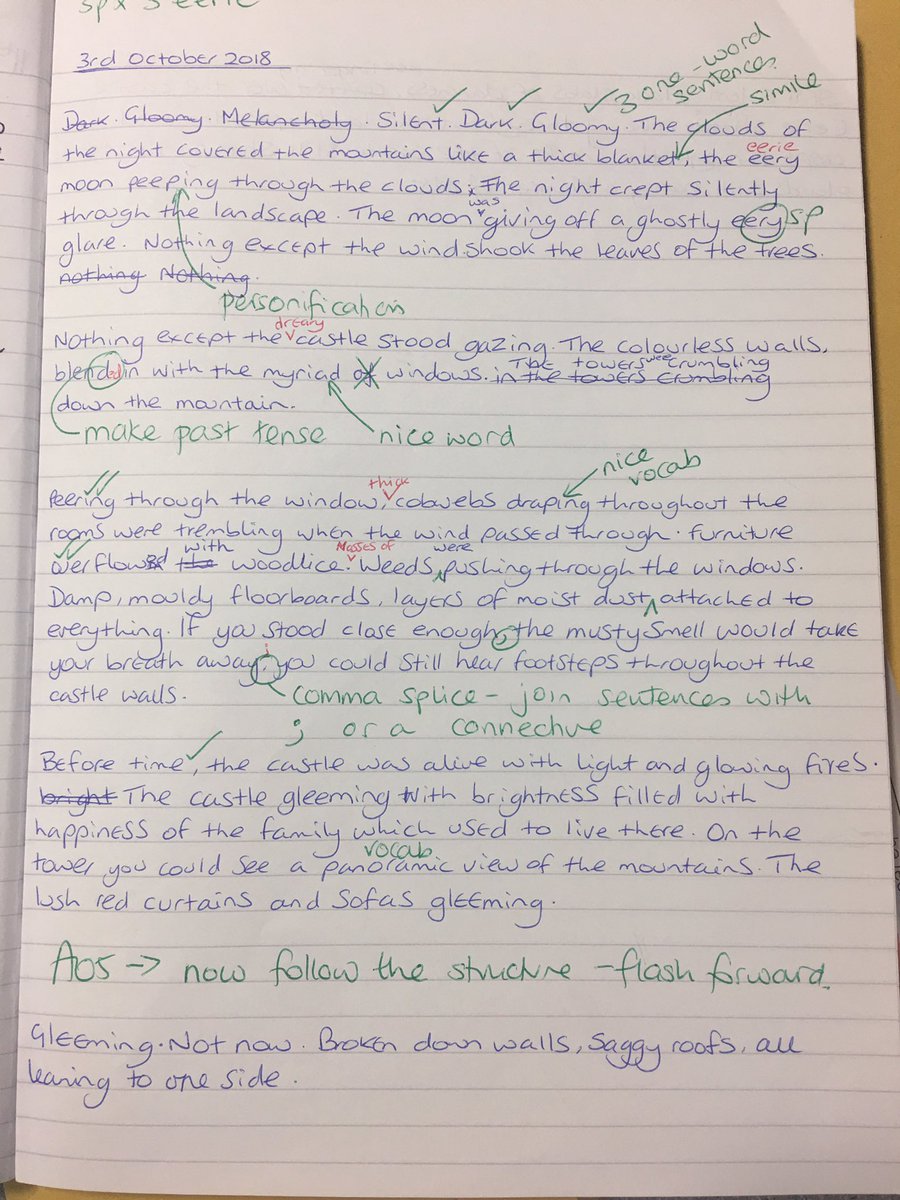 sp x 3 eerie
3rd October 2018
3 one-word
sentences
simile
Dark. Gloomy. Melancholy. Silent. Dark. Gloomy. The clouds of
eerie
the night covered the mountains like a thick blanket, the eery
moon peeping through the clouds. The night crept silently
was
through the landscape. The moon giving off a ghostly eery sp
glare. Nothing except the wind shook the leaves of the trees.
nothing Nothing.
personification
dreary
Nothing except the castle stood gazing. The colourless walls,
The towers were crumbling
blended in with the myriad of windows. in the towers crumbling
down the mountain.
make past tense
nice word
nice
vocab
thick
Peering through the window, cobwebs draping throughout the
rooms were trembling when the wind passed through. furniture
with Masses of were
overflowed the woodlice. Weeds pushing through the windows.
Damp, mouldy floorboards, layers of moist dust attached to
everything. If you stood close enough, the musty smell would take
your breath away; you could still hear footsteps throughout the
castle walls.
comma splice - join sentences with
; or a connective
Before time, the castle was alive with light and glowing fires.
bright The castle gleeming with brightness filled with
happiness of the family which used to live there. On the
vocab
tower you could see a panoramic view of the mountains. The
lush red curtains and sofas gleeming.
A05 → now follow the structure - flash forward.
Gleeming. Not now. Broken down walls, saggy roofs, all
leaning to one side.